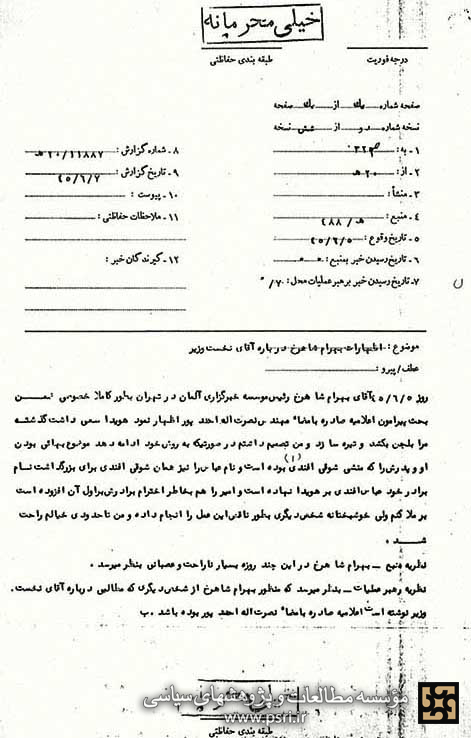 خیلی محرمانه
درجه فوریت
طبقه بندی حفاظتی
صفحه شماره یک از یک صفحه
نسخه شماره دو از شش نسخه
۱ـ به : ۳۲۲
۲ـ از : ۲۰ هـ
۳ـ منشأ :
۴ـ منبع : هـ / ۸۸۱
۵ـ تاریخ وقوع : ۴۵/۶/۵
۶ـ تاریخ رسیدن خبر بمنبع :
۷ـ تاریخ رسیدن خبر برهبر عملیات محل : ۷/
۸ـ شماره گزارش : ۲۰/۱۱۸۸۷ هـ
۹ـ تاریخ گزارش : ۴۵/۶/۷
۱۰ـ پیوست :
۱۱ـ ملاحظات حفاظتی :
۱۲ـ گیرندگان خبر :
موضوع : اظهارات بهرام شاهرخ درباره آقای نخست وزیر
عطف / پیرو :
روز ۴۵/۶/۵ آقای بهرام شاهرخ رئیس موسسه خبرگزاری آلمان در تهران بطور کاملا خصوصی ضمن
بحث پیرامون اعلامیه صادره بامضاء مهندس نصرت اله احمد پور اظهار نمود هویدا سعی داشت گذشته
مرا بلجن بکشد و تیره سازد و من تصمیم داشتم در صورتیکه به روش خود ادامه دهد موضوع بهائی بودن
او و پدرش را که منشی شوقی افندی (۱) بوده است و نام عباس را نیز همان شوقی افندی برای بزرگداشت نام
برادر خود عباس افندی بر هویدا نهاده است و امیر را هم بخاطر احترام برادرش براول آن افزوده است
بر ملا کنم ولی خوشبختانه شخص دیگری بطور ناقص این عمل را انجام داده و من تاحدودی خیالم راحت
شد .
نظریه منبع ـ بهرام شاهرخ در این چند روزه بسیار ناراحت و عصبانی بنظر میرسد .
نظریه رهبر عملیات ـ بنظر میرسد که منظور بهرام شاهرخ از شخص دیگری که مطالبی درباره آقای نخست
وزیر نوشته است اعلامیه صادره بامضاء نصرت اله احمد پور بوده باشد . ب
مؤسسه مطالعات و پژوهشهای سیاسی
www.psri.ir
طبقه بندی حفاظتی